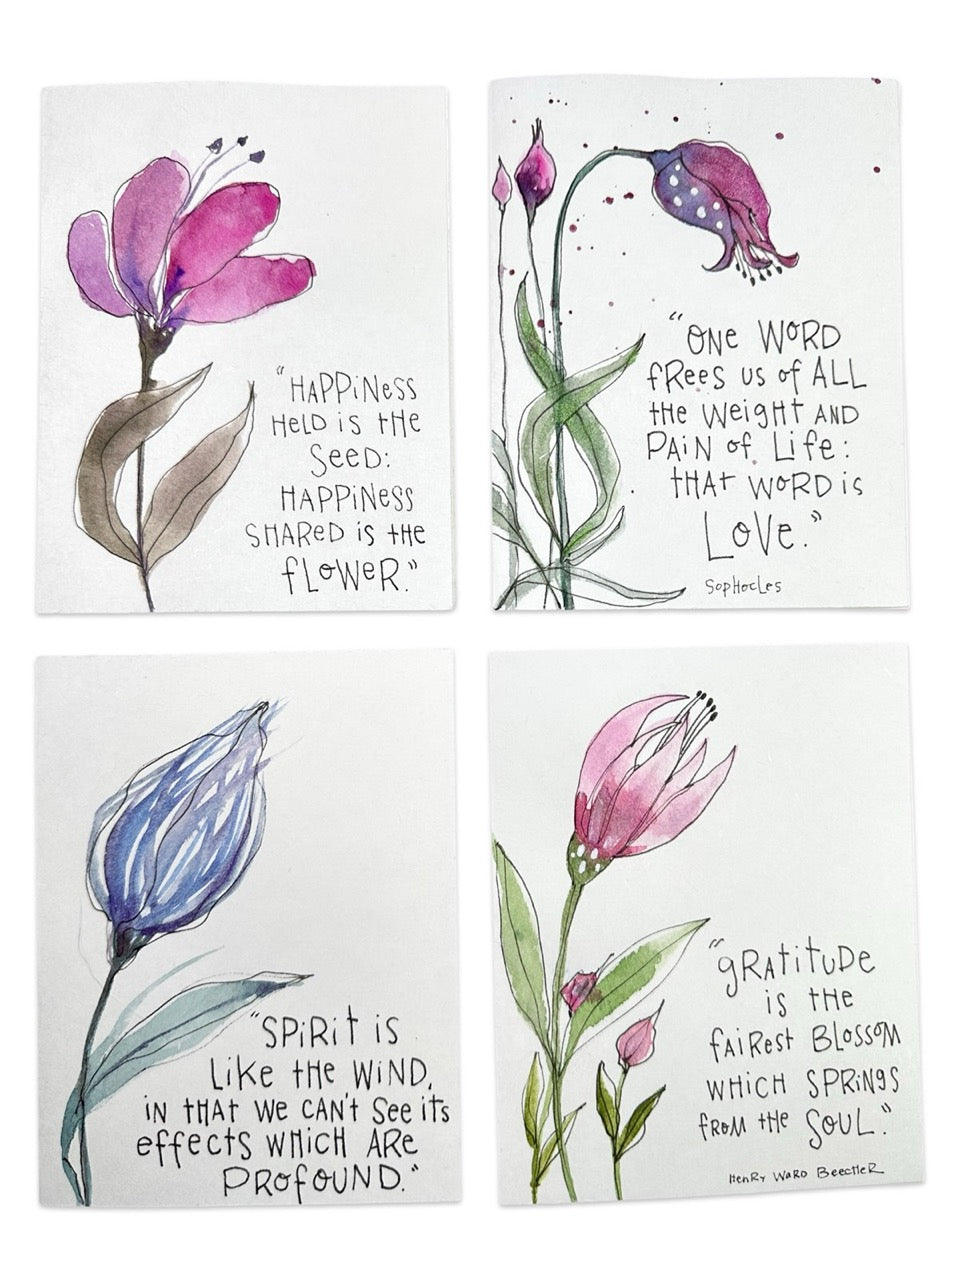 "HAPPiNess
HeLD is tHe
SeeD:
HAPPiNess
SHARed is tHe
fLoWeR."
"ONe WoRD
fRees us of ALL
the Weight AND
PAiN of Life:
tHAt WoRD is
LoVe."
SopHocLes
"SPiRit is
Like tHe WiND,
iN tHAt We CAN't See its
effects WHicH ARe
PRofouND."
"gRAtituDe
is tHe
fAiRest BLossoM
WHicH SPRiNgs
fRoM tHe SouL."
HeNRy WaRD BeecHeR